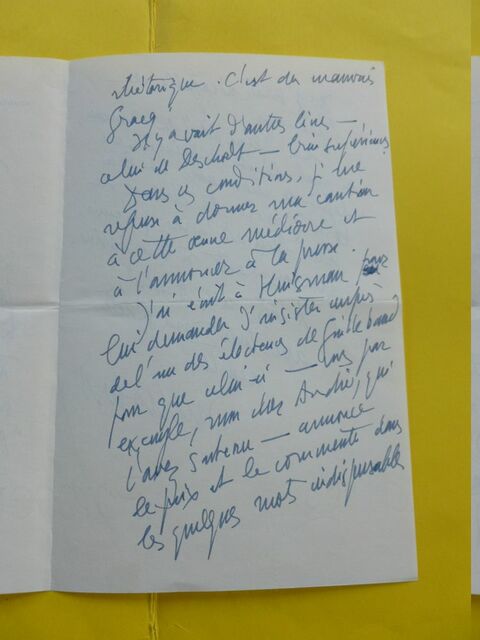 rhétorique. C'est du mauvais
Gracq
Il y avait d'autres livres —
celui de — bien supérieurs.
Dans ces conditions, je me
refuse à donner ma caution
à cette œuvre médiocre et
à l'annoncer à la presse.
J'ai écrit à Huisman pour
lui demander d'insister auprès
de l'un des électeurs de
pour que celui-ci — vous par
exemple, mon cher André, qui
l'avez soutenu — annonce
le prix et le commente dans
les quelques mots indispensables